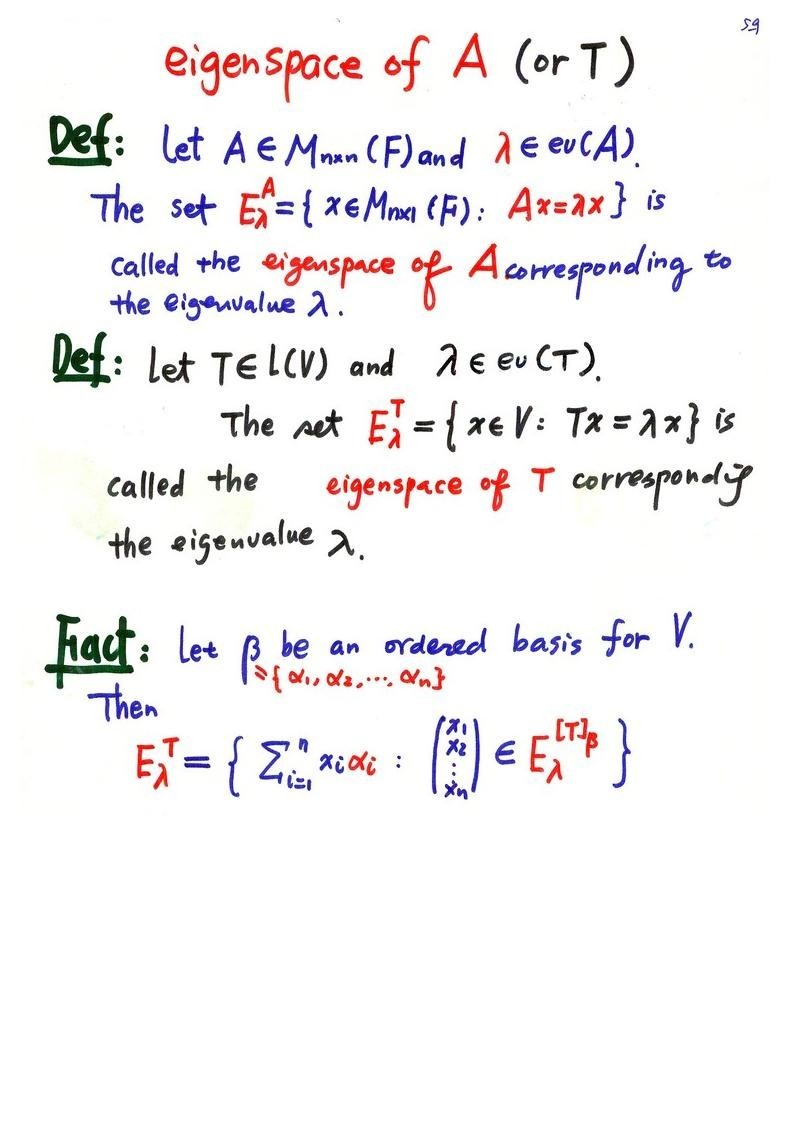 59
eigenspace of A (or T)
Def: let A ∈ Mnxn (F) and λ ∈ ev(A).
The set E_λ^A = { x ∈ Mnx1 (F) : Ax = λx } is
called the eigenspace of A corresponding to
the eigenvalue λ.
Def: let T ∈ L(V) and λ ∈ ev(T).
The set E_λ^T = { x ∈ V : Tx = λx } is
called the eigenspace of T corresponding
the eigenvalue λ.
Fact: Let β be an ordered basis for V.
= { α1, α2, ..., αn }
Then
E_λ^T = { Σ_{i=1}^n xi αi : (x1 x2 ⋮ xn) ∈ E_λ^{[T]_β} }